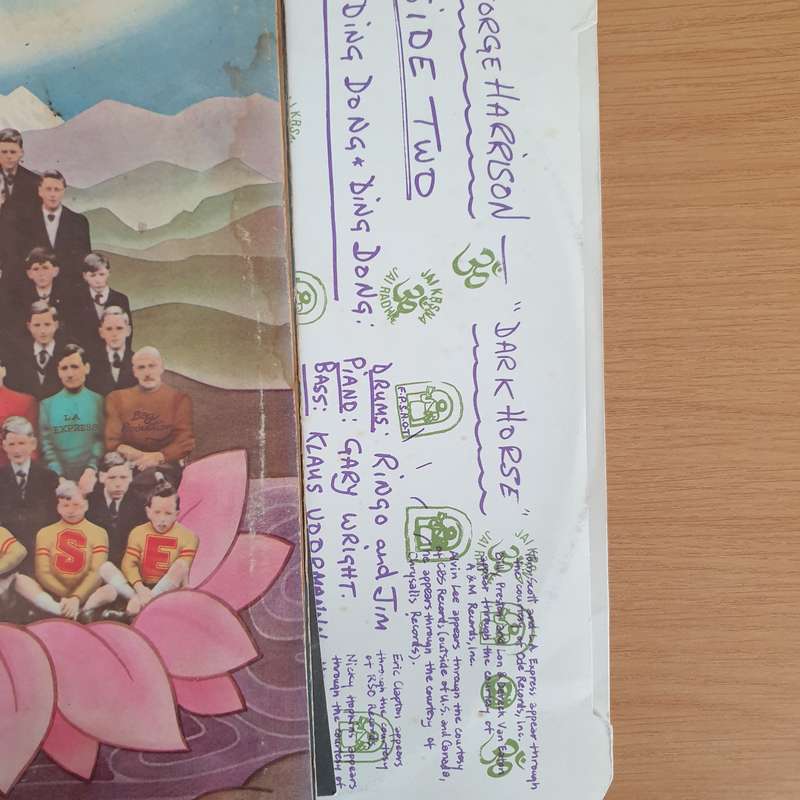 ORGE HARRISON — "DARK HORSE"
SIDE TWO
DING DONG * DING DONG:
DRUMS: RINGO and JIM
PIANO: GARY WRIGHT.
BASS: KLAUS VOORMANN
Express appear through
the courtesy of Ode Records, Inc.
Billy Preston and Lon & Derrek Van Eaton
appear through the courtesy of
A & M Records, Inc.
Alvin Lee appears through the courtesy
of CBS Record, (outside of U.S. and Canada,
appears through the courtesy of
Chrysalis Records).
Eric Clapton appears
through the courtesy
of RSO Records
Nicky Hopkins appears
through the courtesy of
JAI KRSNA
JAI RADHE
ॐ
F.P.S.H.O.T.
LA
EXPRESS
Bag
S
E